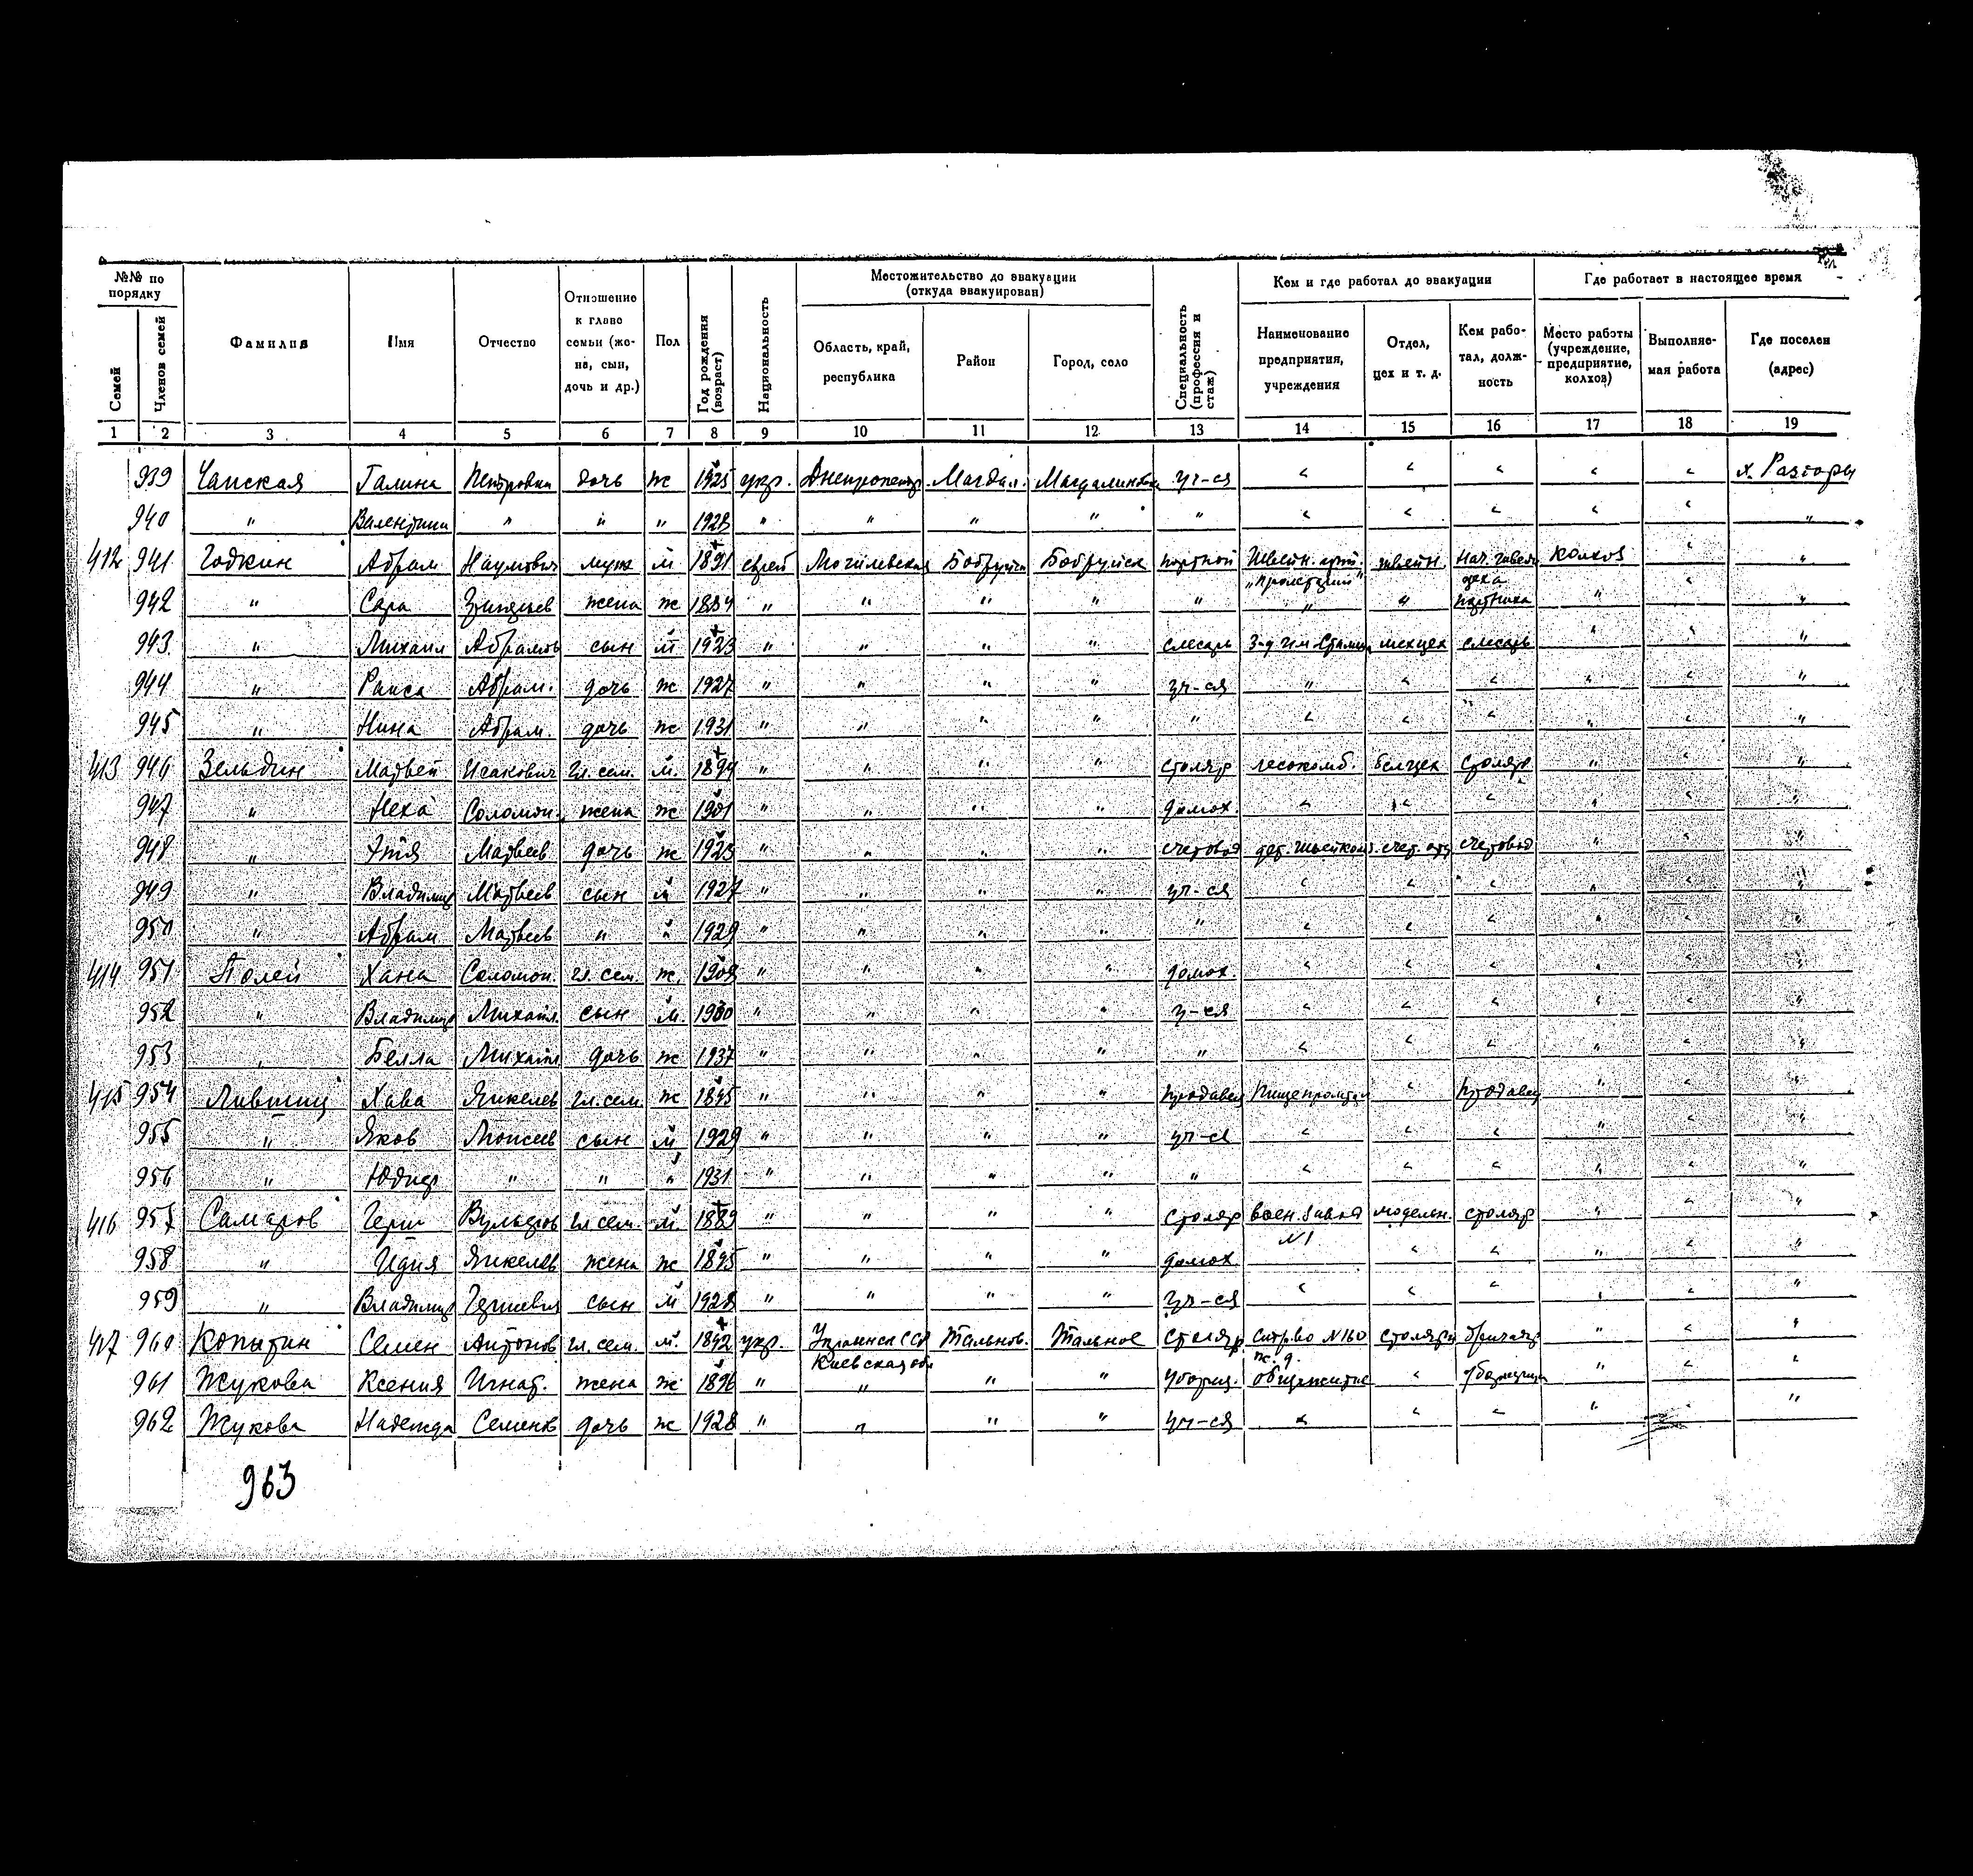 №№ по порядку
Семей
Членов семей
Фамилия
Имя
Отчество
Отношение к главе семьи (жена, сын, дочь и др.)
Пол
Год рождения (возраст)
Национальность
Местожительство до эвакуации (откуда эвакуирован)
Область, край, республика
Район
Город, село
Специальность (профессия и стаж)
Кем и где работал до эвакуации
Наименование предприятия, учреждения
Отдел, цех и т. д.
Кем работал, должность
Где работает в настоящее время
Место работы (учреждение, предприятие, колхоз)
Выполняемая работа
Где поселен (адрес)
1 2 3 4 5 6 7 8 9 10 11 12 13 14 15 16 17 18 19
939 Чапская Галина Петровна дочь ж 1925 укр. Днепропетр Магдал. Магдалиновка уч-ся " " " " " х. Разгоры
940 " Валентина " " " 1928 " " " " " " " " " " "
412 941 Годкин Абрам Наумович муж м 1891 еврей Могилевская Бобруйск Бобруйск портной Швейн. арт. "Пролетарий" швейн. нач. швейн цеха колхоз " "
942 " Сара жена ж 1884 " " " " " " " портниха " " "
943 " Михаил Абрамов сын м 1923 " " " " слесарь З-д им Сталина мехцех слесарь " " "
944 " Раиса Абрам. дочь ж 1927 " " " " уч-ся " " " " " "
945 " Нина Абрам. дочь ж 1931 " " " " " " " " " " "
413 946 Зельдин Матвей Исакович гл. сем. м. 1894 " " " " столяр лесокомб. белцех столяр " " "
947 " Неха Соломон. жена ж 1901 " " " " домох. " " " " " "
948 " Этя Матвеев дочь ж 1923 " " " " счетовод счет. отд счетовод " " "
949 " Владимир Матвеев сын м 1927 " " " " уч-ся " " " " " "
950 " Абрам Матвеев " " 1929 " " " " " " " " " " "
414 951 Полей Хана Соломон. гл. сем. ж. 1908 " " " " домох. " " " " " "
952 " Владимир Михайл. сын м. 1930 " " " " у-ся " " " " " "
953 " Белла Михайл дочь ж 1937 " " " " " " " " " " "
415 954 Лившиц Хава Янкелев гл. сем. ж 1895 " " " " продавец Пищепромторг " продавец " " "
955 " Яков Моисеев сын м 1929 " " " " уч-ся " " " " " "
956 " " " " 1931 " " " " " " " " " " "
416 957 Самаров Герш Вульфов гл сем. м 1889 " " " " столяр воен. завод N1 модельн. столяр " " "
958 " Идия Янкелев жена ж 1895 " " " " домох " " " " "
959 " Владимир Гершевич сын м 1928 " " " " уч-ся " " " " " "
417 960 Копытин Семен Антонов гл. сем. м. 1892 укр. Украинск ССР Киевская обл Тальнов. Тальное столяр N 160 ж. д. " " "
961 Жукова Ксения Игнат. жена ж 1896 " " " " уборщ. общежитие " уборщица " " "
962 Жукова Надежда Семенов дочь ж 1928 " " " " уч-ся " " " " "
963